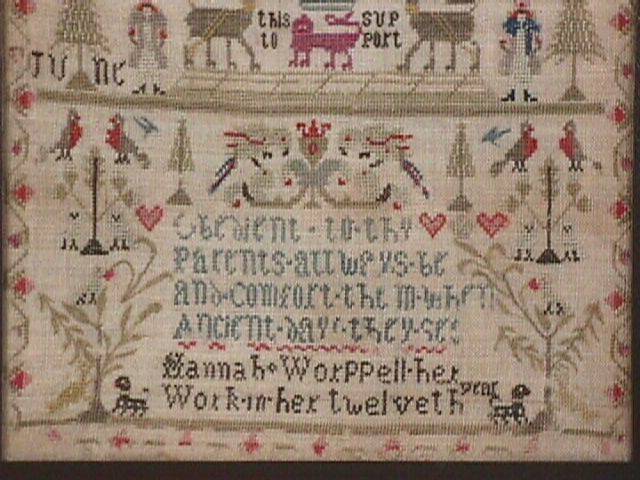 this SUP
to Port
JU ne
Obedient · to · thy
Parents · all weys · be
and · Comfort · the m · when
Ancient · days · they · see
Hannah · Worppell · her
Work · in · her twelveth year